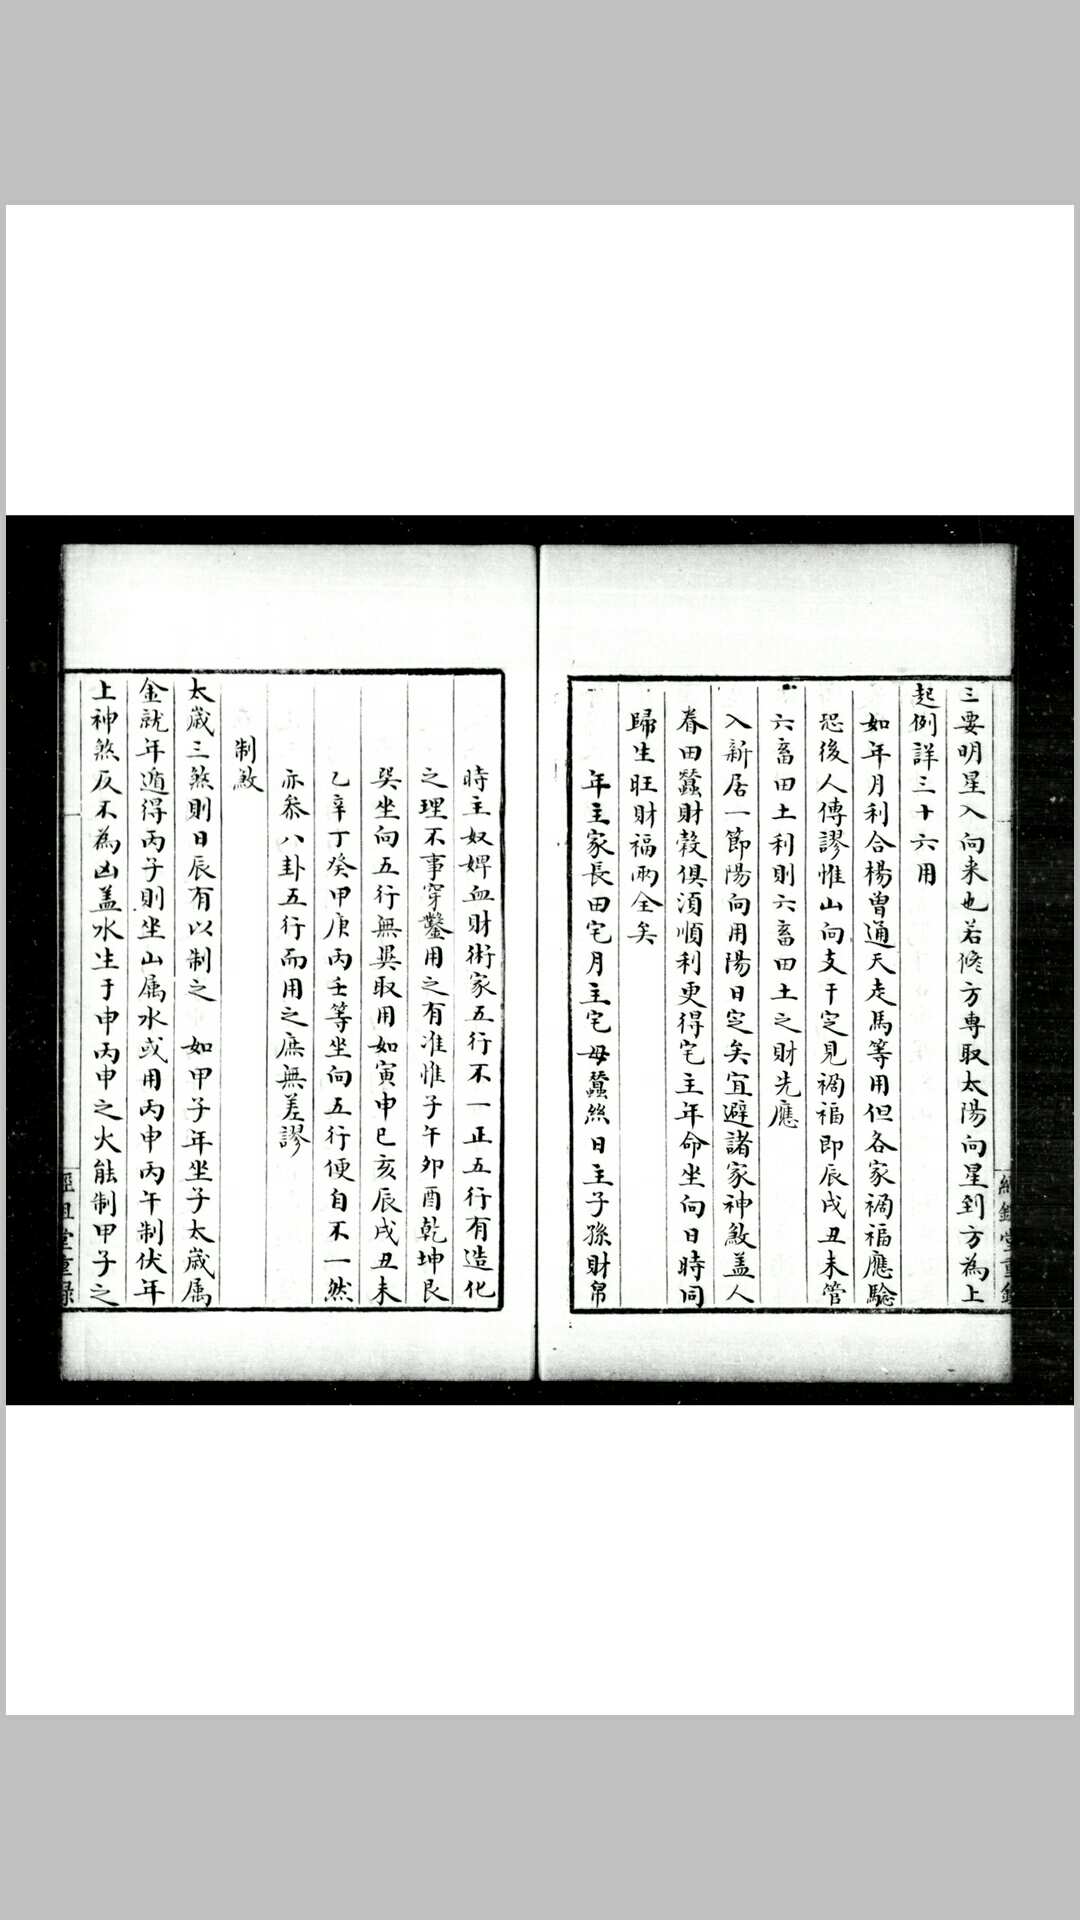 三要明星入向来也若修方專取太陽向星到方為上
起例詳三十六用
如年月利合楊曾通天走馬等用但各家禍福應驗
恐後人傳謬惟山向支干定見禍福即辰戌丑未管
六畜田土利則六畜田土之財先應
入新居一節陽向用陽日定矣宜避諸家神煞盖人
眷田蠶財穀俱湏順利更得宅主年命坐向日時同
歸生旺財福兩全矣
年主家長田宅月主宅母蠶絲日主子孫財帛
時主奴婢血財術家五行不一正五行有造化
之理不事穿鑿用之有准惟子午卯酉乾坤艮
巽坐向五行無異取用如寅申巳亥辰戌丑未
乙辛丁癸甲庚丙壬等坐向五行便自不一然
亦叅八卦五行而用之庶無差謬
制煞
太歲三煞則日辰有以制之 如甲子年坐子太歲属
金就年遁得丙子則坐山属水或用丙申丙午制伏年
上神煞反不為凶盖水生于申丙申之火能制甲子之